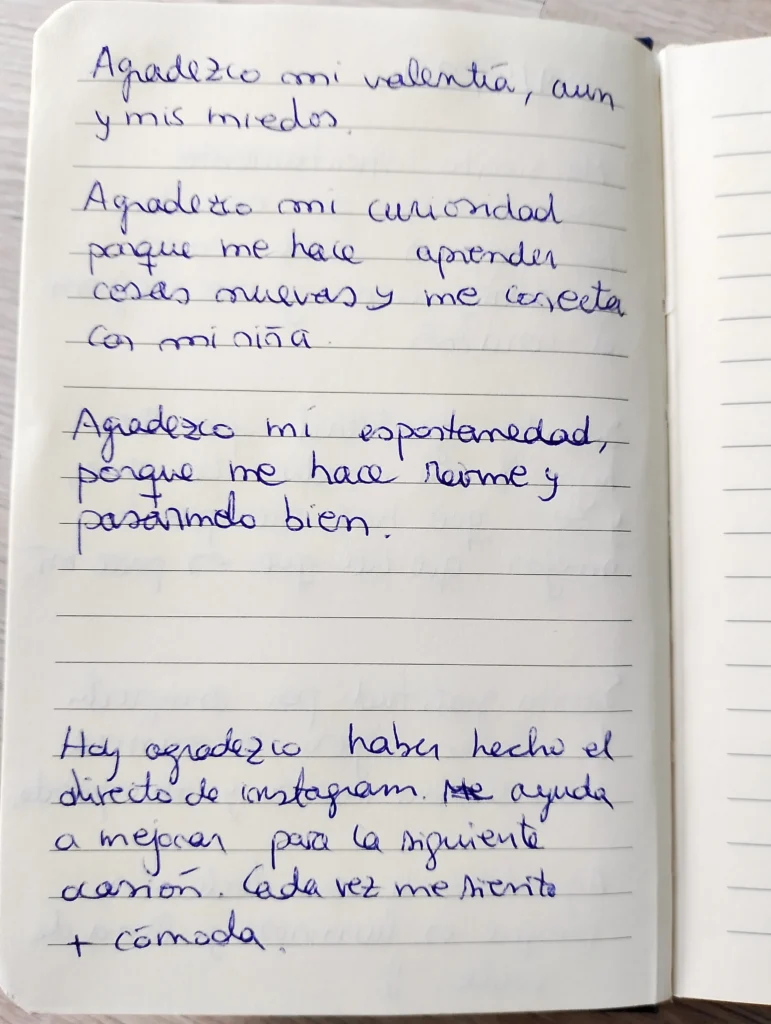 Agradezco mi valentía, aun
y mis miedos.
Agradezco mi curiosidad
porque me hace aprender
cosas nuevas y me conecta
con mi niña.
Agradezco mi espontanedad,
porque me hace reirme y
pasármelo bien.
Hoy agradezco haber hecho el
directo de instagram. Me ayuda
a mejorar para la siguiente
ocasión. Cada vez me siento
+ cómoda.